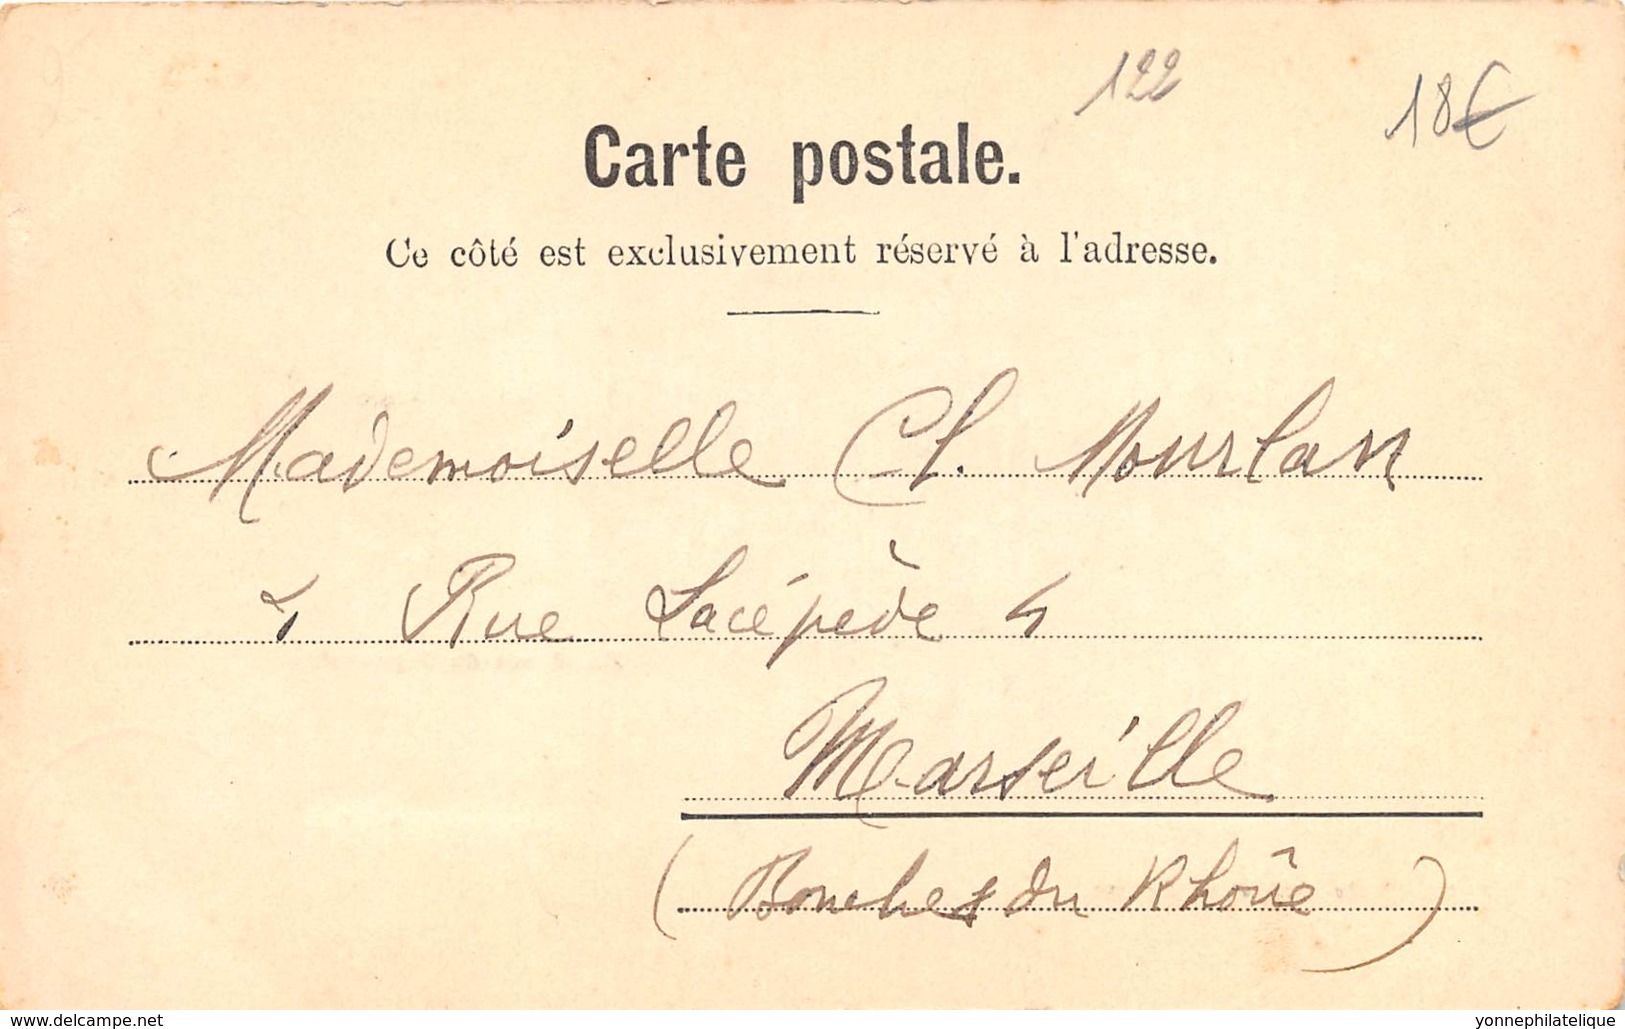 122
18€
Carte postale.
Ce côté est exclusivement réservé à l'adresse.
Mademoiselle Cl. Mourlan
4 Rue Lacépède 4
Marseille
(Bouches du Rhône)
www.delcampe.net
yonnephilatelique